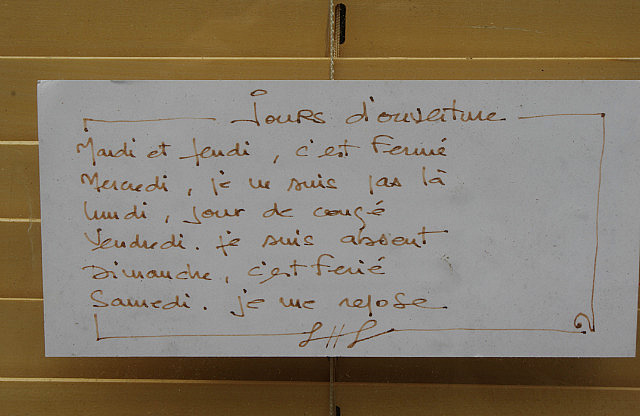 Jours d'ouverture
Mardi et Jeudi, c'est Fermé
Mercredi, je ne suis pas là
lundi, jour de congé
Vendredi. je suis absent
Dimanche, c'est Ferié
Samedi. je me repose